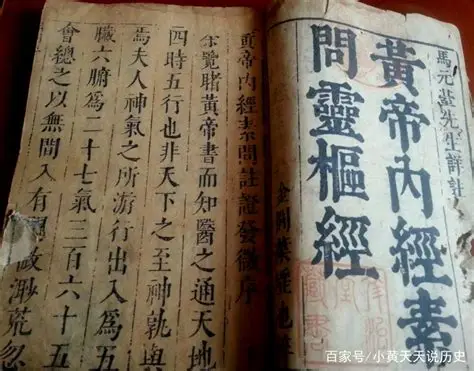 馬元臺先生詳註
黃帝內經素
問靈樞經
金閶葉
藏書
黃帝內經素問註證發微序
余覽睹黃帝書而知醫之通天地
四時五行也非天下之至神孰與
焉夫人神氣之所游行出入為五
臟六腑為二十七氣三百六十五
會總之以無間入有間微渺荒忽
百家号/小黄天天说历史